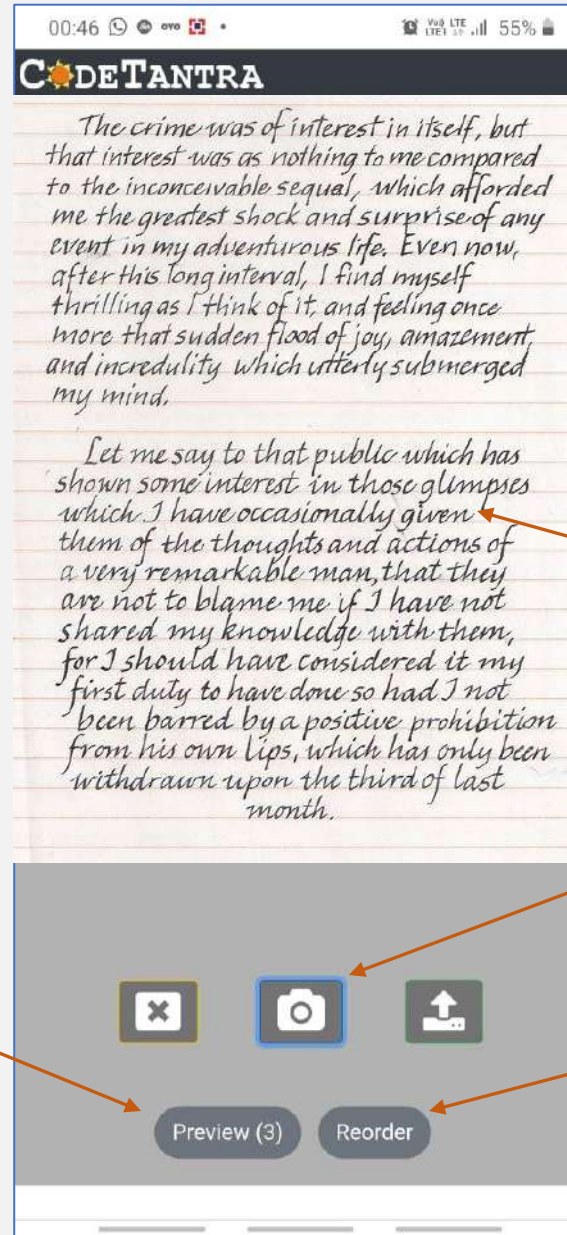 00:46
Voi) LTE
LTE1
55%
CODETANTRA
The crime was of interest in itself, but
that interest was as nothing to me compared
to the inconceivable sequel, which afforded
me the greatest shock and surprise of any
event in my adventurous life. Even now,
after this long interval, I find myself
thrilling as I think of it, and feeling once
more that sudden flood of joy, amazement,
and incredulity which utterly submerged
my mind.
Let me say to that public which has
shown some interest in those glimpses
which I have occasionally given
them of the thoughts and actions of
a very remarkable man, that they
are not to blame me if I have not
shared my knowledge with them,
for I should have considered it my
first duty to have done so had I not
been barred by a positive prohibition
from his own lips, which has only been
withdrawn upon the third of last
month.
Preview (3)
Reorder